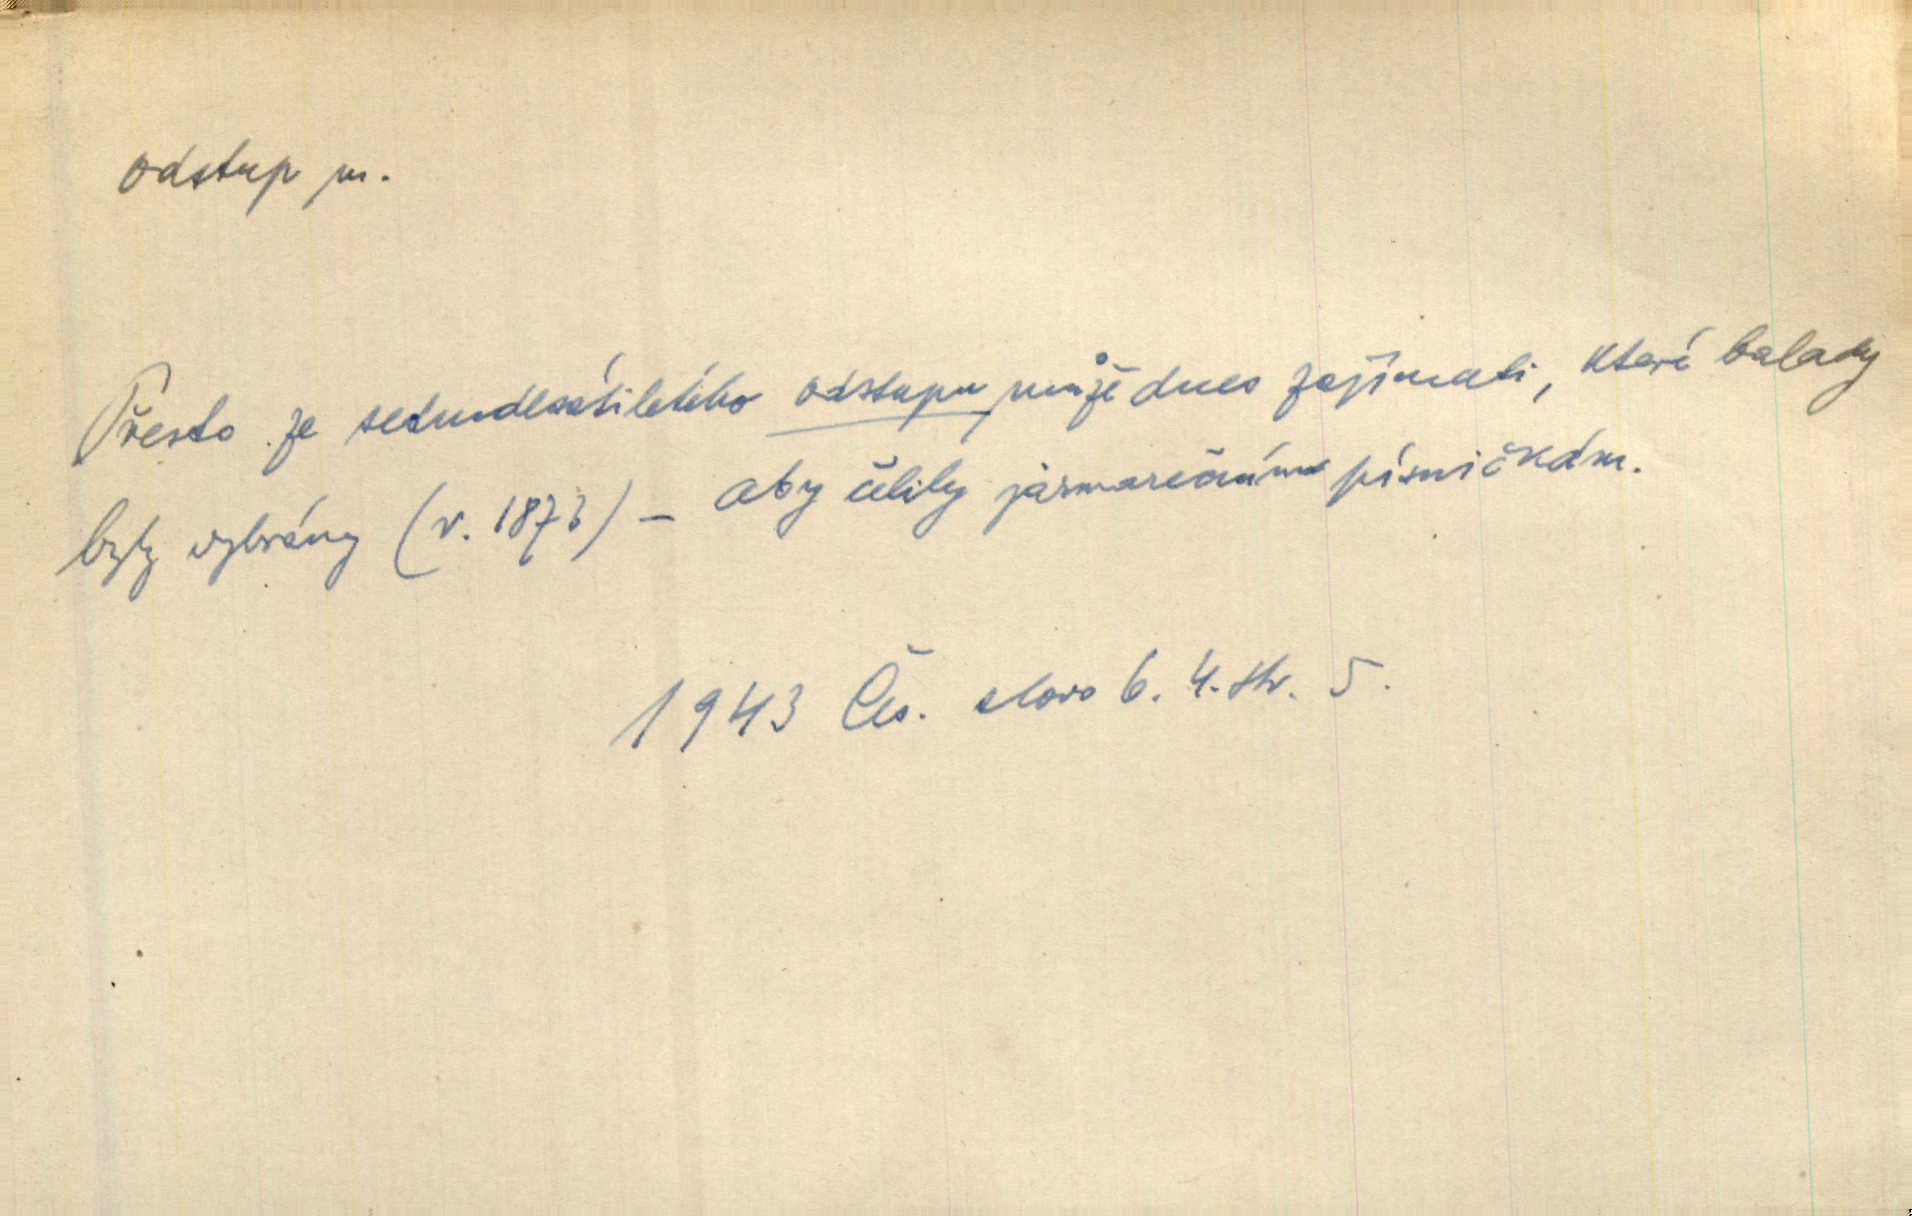 odstup m.
Přesto ze sedmdesátiletého odstupu může dnes zajímati, které balady
byly vybrány (r. 1873) – aby čelily jarmarečním písničkám.
1943 Čes. slovo 6. 4. str. 5.